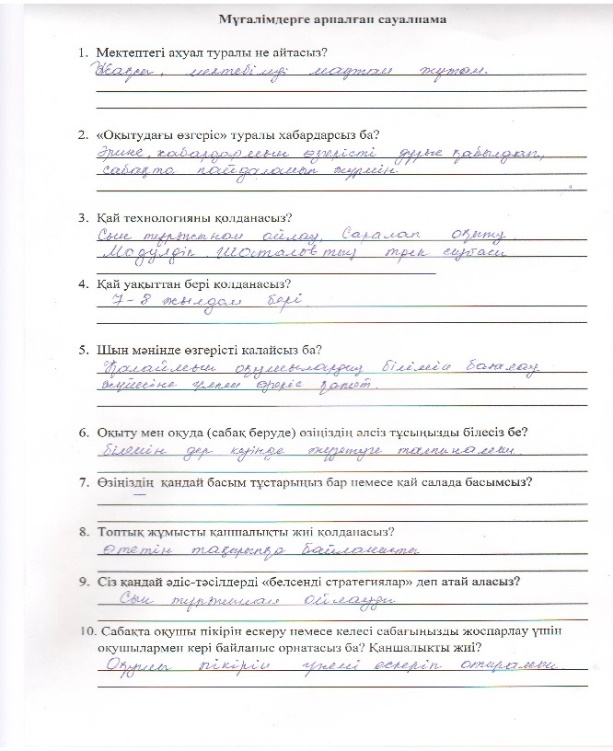 Мұғалімдерге арналған сауалнама
1. Мектептегі ахуал туралы не айтасыз?
Жақсы, мектебімді мақтан тұтам.
2. «Оқытудағы өзгеріс» туралы хабардарсыз ба?
Әрине, хабардармын өзгерісті дұрыс қабылдап,
сабақта пайдаланып жүрмін.
3. Қай технологияны қолданасыз?
Сын тұрғысынан ойлау, Саралап оқыту
Модульдік, Шаталовтың тірек сызбасы
4. Қай уақыттан бері қолданасыз?
7-8 жылдан бері.
5. Шын мәнінде өзгерісті қалайсыз ба?
Қалаймын оқушылардың білімін бағалау
жүйесіне үлкен өзгеріс қажет.
6. Оқыту мен оқуда (сабақ беруде) өзіңіздің әлсіз тұсыңызды білесіз бе?
Білемін дер кезінде түзетуге талпынамын.
7. Өзіңіздің қандай басым тұстарыңыз бар немесе қай салада басымсыз?
8. Топтық жұмысты қаншалықты жиі қолданасыз?
Өтетін тақырыпқа байланысты
9. Сіз қандай әдіс-тәсілдерді «белсенді стратегиялар» деп атай аласыз?
Сын тұрғысынан ойлауды
10. Сабақта оқушы пікірін ескеру немесе келесі сабағыңызды жоспарлау үшін
оқушылармен кері байланыс орнатасыз ба? Қаншалықты жиі?
Оқушы пікірін үнемі ескеріп отырамын.